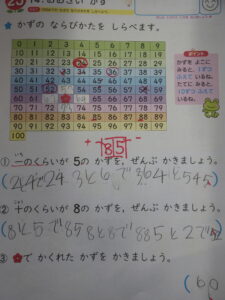 25 14. おおきい かず
★ かずの ならびかたを しらべます。
0 1 2 3 4 5 6 7 8 9
10 11 12 13 14 15 16 17 18 19
20 21 22 23 24 25 26 27 28 29
30 31 32 33 34 35 36 37 38 39
40 41 42 43 44 45 46 47 48 49
50 51 52 53 54 55 56 57 58 59
60 61 62 66 67 68 69
70 71 72 73 74 75 76 77 78 79
80 81 82 83 84 85 86 87 88 89
90 91 92 93 94 95 96 97 98 99
100
ポイント
かずを よこに
みると、1ずつ
ふえて いるね。
たてに みると
10ずつ ふえて
いるね。
+ 8 5 -
① 一のくらいが 5の かずを、ぜんぶ かきましょう。
② 十のくらいが 8の かずを、ぜんぶ かきましょう。
8と5で85 8と8で88
③ で かくれた かずを かきましょう。
(60